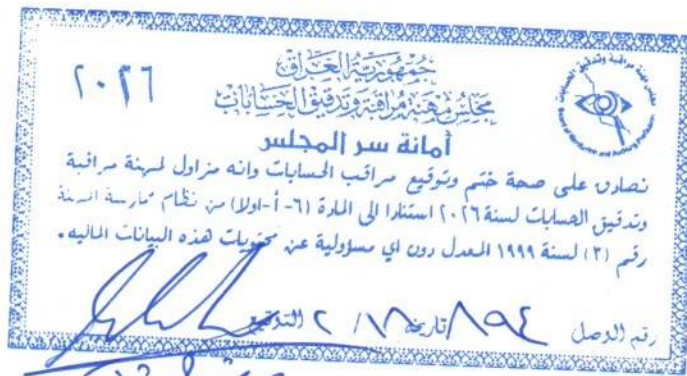 جمهورية العراق
٢٠٢٦
مجلس مهنة مراقبة وتدقيق الحسابات
أمانة سر المجلس
نصادق على صحة ختم وتوقيع مراقب الحسابات وانه مزاول لمهنة مراقبة
وتدقيق الحسابات لسنة ٢٠٢٦ استنادا الى المادة (٦-أ-اولا) من نظام ممارسة المهنة
رقم (٣) لسنة ١٩٩٩ المعدل دون اي مسؤولية عن محتويات هذه البيانات الماليه.
رقم الوصل ٨٩٤ تاريخه / ٢ التوقيع